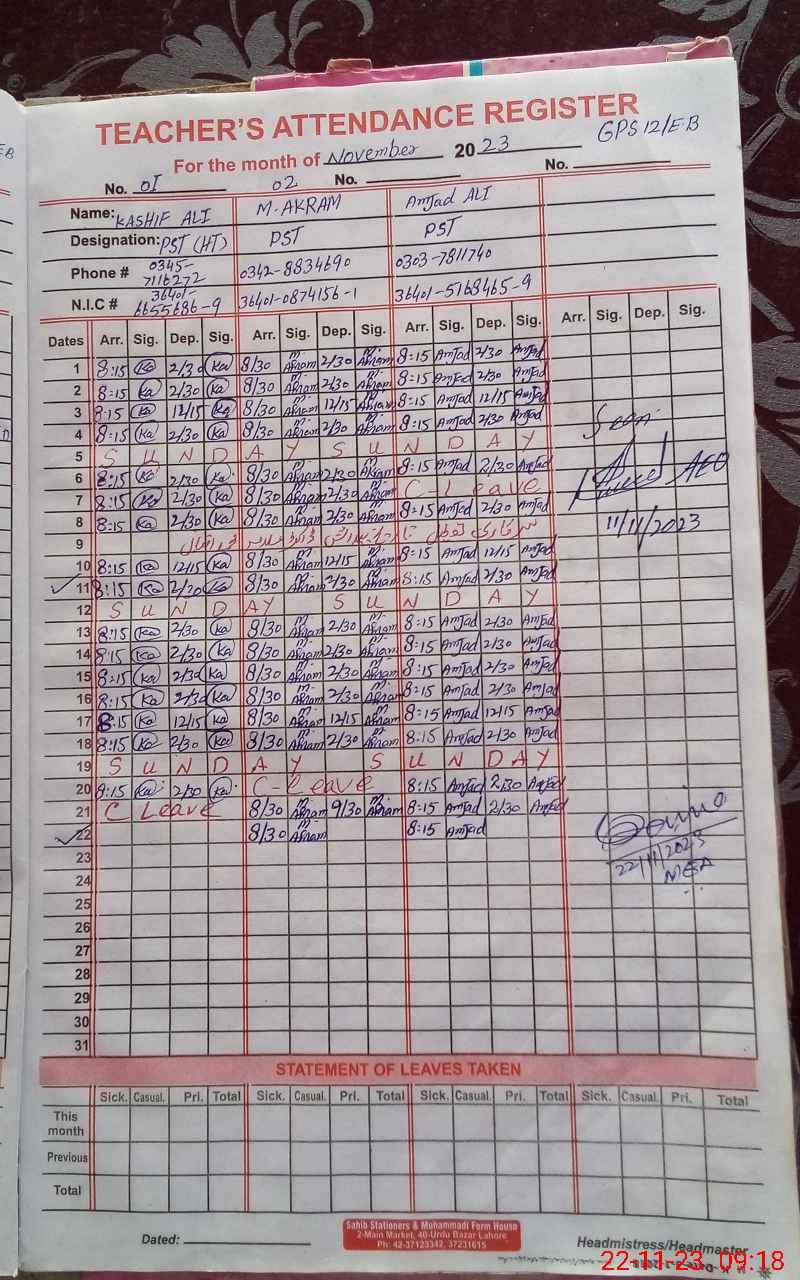 TEACHER'S ATTENDANCE REGISTER
GPS 12/E.B
For the month of November 2023
No. 01 02 No. No.
Name: KASHIF ALI M. AKRAM Amjad ALI
Designation: PST (HT) PST PST
Phone # 0345-7116272 0342-8834690 0303-7811740
N.I.C # 36401-6655686-9 36401-0874156-1 36401-5168465-9
Dates Arr. Sig. Dep. Sig. Arr. Sig. Dep. Sig. Arr. Sig. Dep. Sig. Arr. Sig. Dep. Sig.
1 8:15 Ka 2/30 Ka 8/30 m. Akram 2/30 m. Akram 8:15 Amjad 2/30 Amjad
2 8:15 Ka 2/30 Ka 8/30 m. Akram 2/30 m. Akram 8:15 Amjad 2/30 Amjad
3 8:15 Ka 12/15 Ka 8/30 m. Akram 12/15 m. Akram 8:15 Amjad 12/15 Amjad
4 8:15 Ka 2/30 Ka 8/30 m. Akram 2/30 m. Akram 8:15 Amjad 2/30 Amjad
5 S U N D A Y S U N D A Y
6 8:15 Ka 2/30 Ka 8/30 m. Akram 2/30 m. Akram 8:15 Amjad 2/30 Amjad
7 8:15 Ka 2/30 Ka 8/30 m. Akram 2/30 m. Akram C-Leave
8 8:15 Ka 2/30 Ka 8/30 m. Akram 2/30 m. Akram 8:15 Amjad 2/30 Amjad
AEO
11/11/2023
9 سرکاری تعطیل
10 8:15 Ka 12/15 Ka 8/30 m. Akram 12/15 m. Akram 8:15 Amjad 12/15 Amjad
11 8:15 Ka 2/30 Ka 8/30 m. Akram 2/30 m. Akram 8:15 Amjad 2/30 Amjad
12 S U N D A Y S U N D A Y
13 8:15 Ka 2/30 Ka 8/30 m. Akram 2/30 m. Akram 8:15 Amjad 2/30 Amjad
14 8:15 Ka 2/30 Ka 8/30 m. Akram 2/30 m. Akram 8:15 Amjad 2/30 Amjad
15 8:15 Ka 2/30 Ka 8/30 m. Akram 2/30 m. Akram 8:15 Amjad 2/30 Amjad
16 8:15 Ka 2/30 Ka 8/30 m. Akram 2/30 m. Akram 8:15 Amjad 2/30 Amjad
17 8:15 Ka 12/15 Ka 8/30 m. Akram 12/15 m. Akram 8:15 Amjad 12/15 Amjad
18 8:15 Ka 2/30 Ka 8/30 m. Akram 2/30 m. Akram 8:15 Amjad 2/30 Amjad
19 S U N D A Y S U N D A Y
20 8:15 Ka 2/30 Ka C-Leave 8:15 Amjad 2:30 Amjad
21 C Leave 8/30 m. Akram 9/30 m. Akram 8:15 Amjad 2/30 Amjad
22 8/30 m. Akram 8:15 Amjad
22/11/2023
MEA
23
24
25
26
27
28
29
30
31
STATEMENT OF LEAVES TAKEN
Sick. Casual. Pri. Total Sick. Casual. Pri. Total Sick. Casual. Pri. Total Sick. Casual. Pri. Total
This month
Previous
Total
Dated:
Sahib Stationers & Muhammadi Form House
2-Main Market, 40-Urdu Bazar Lahore
Ph: 42-37123342, 37231615
Headmistress/Headmaster
22.11.23 09:18